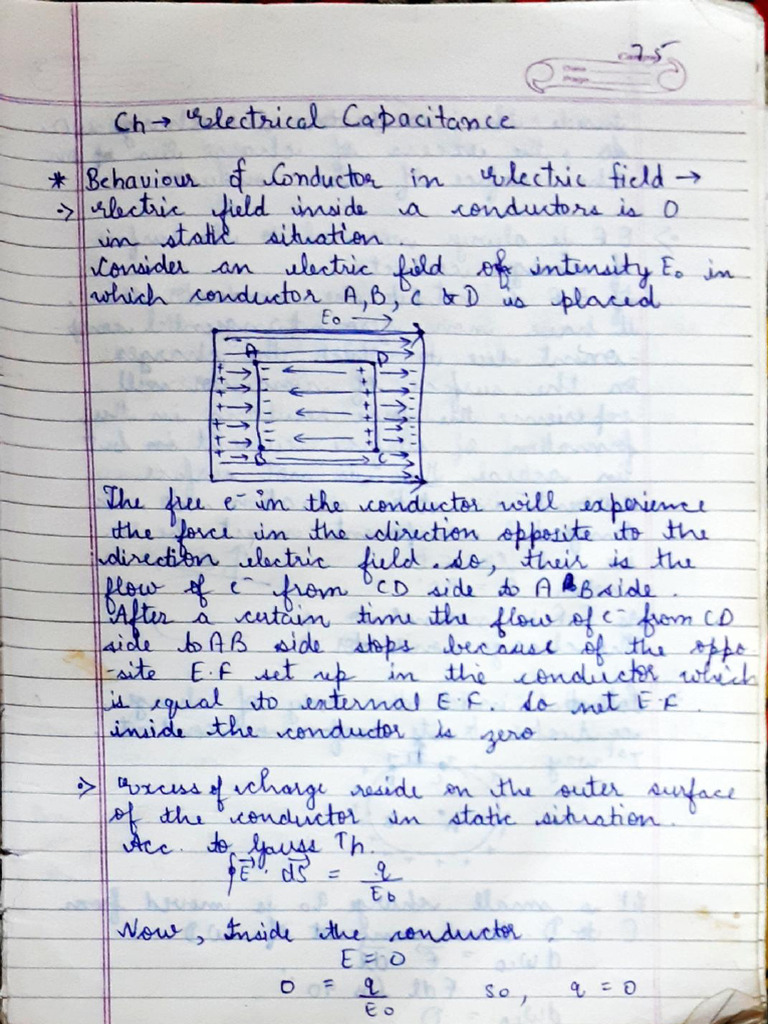 75
Ch → Electrical Capacitance
* Behaviour of Conductor in Electric field →
⇒ Electric field inside a conductors is 0
in static situation.
Consider an electric field of intensity E₀ in
which conductor A, B, C & D is placed
E₀ →
A D
B C
The free e⁻ in the conductor will experience
the force in the direction opposite to the
direction electric field. So, their is the
flow of e⁻ from CD side to AB side.
After a certain time the flow of e⁻ from CD
side to AB side stops because of the oppo
-site E.F set up in the conductor which
is equal to external E.F. So net E.F.
inside the conductor is zero
⇒ Excess of charge reside on the outer surface
of the conductor in static situation.
Acc. to Gauss Th.
∮E⃗ · dS⃗ = q/E₀
Now, Inside the conductor
E = 0
0 = q/E₀ so, q = 0